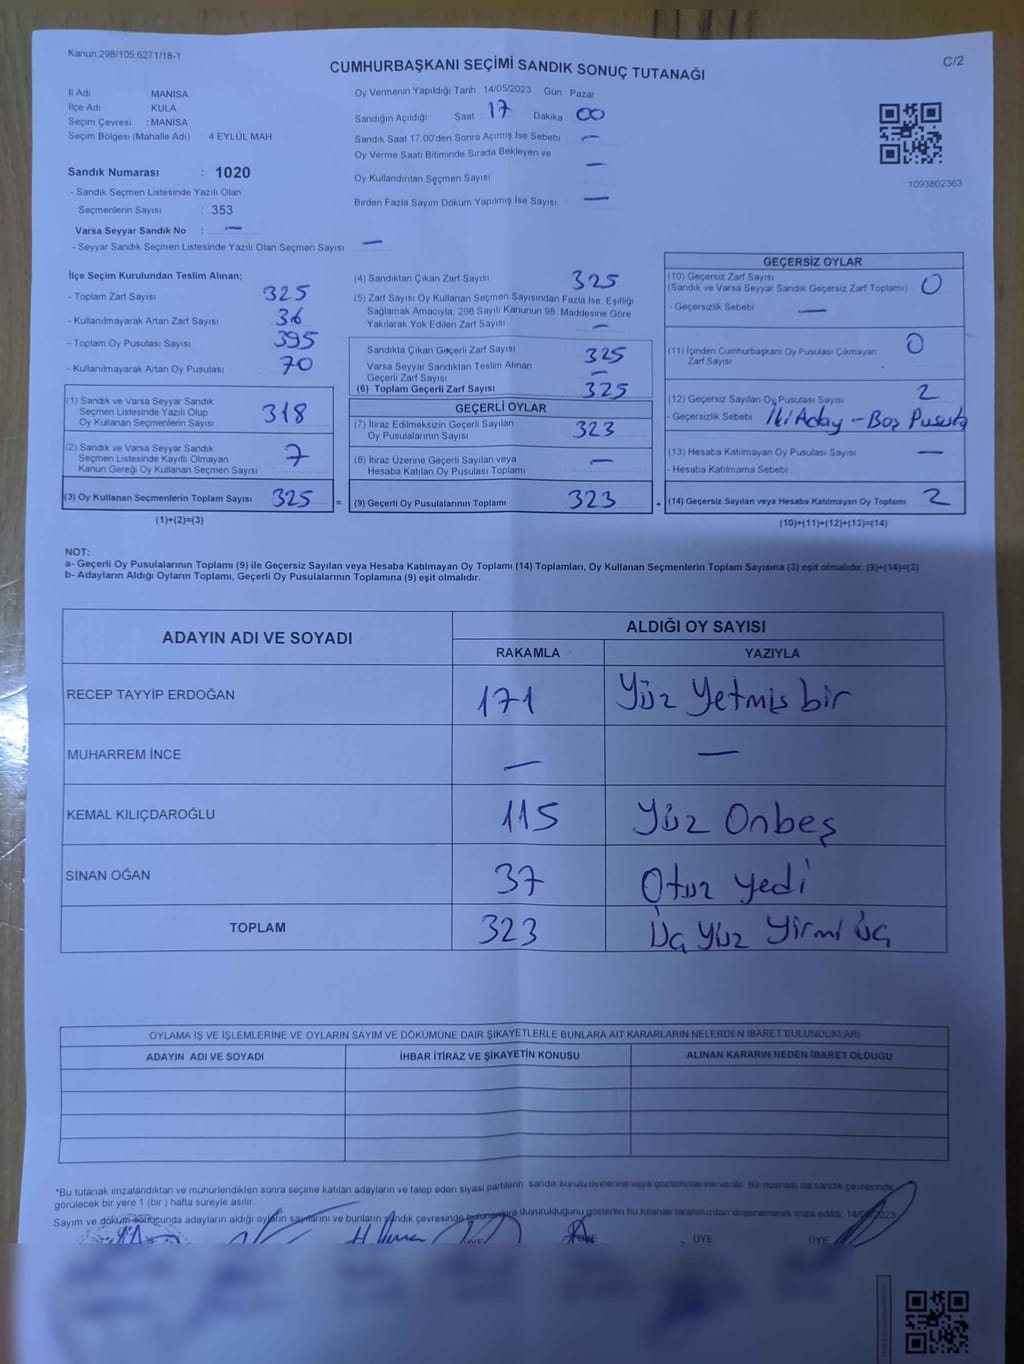 Kanun,298/105,6271/18-1
C/2
CUMHURBAŞKANI SEÇİMİ SANDIK SONUÇ TUTANAĞI
İl Adı MANİSA
İlçe Adı : KULA
Seçim Çevresi : MANİSA
Seçim Bölgesi (Mahalle Adı) 4 EYLÜL MAH.
Oy Vermenin Yapıldığı Tarih 14/05/2023 Gün Pazar
Sandığın Açıldığı Saat 17 Dakika 00
Sandık Saat 17:00'den Sonra Açımış İse Sebebi —
Oy Verme Saati Bitiminde Sırada Bekleyen ve
Oy Kullandırılan Seçmen Sayısı —
Birden Fazla Sayım Döküm Yapılmış İse Sayısı —
1093802363
Sandık Numarası : 1020
- Sandık Seçmen Listesinde Yazılı Olan
Seçmenlerin Sayısı : 353
Varsa Seyyar Sandık No : —
- Seyyar Sandık Seçmen Listesinde Yazılı Olan Seçmen Sayısı —
İlçe Seçim Kurulundan Teslim Alınan;
- Toplam Zarf Sayısı 325
- Kullanılmayarak Artan Zarf Sayısı 36
- Toplam Oy Pusulası Sayısı 395
- Kullanılmayarak Artan Oy Pusulası 70
(1) Sandık ve Varsa Seyyar Sandık
Seçmen Listesinde Yazılı Olup
Oy Kullanan Seçmenlerin Sayısı 318
(2) Sandık ve Varsa Seyyar Sandık
Seçmen Listesinde Kayıtlı Olmayan
Kanun Gereği Oy Kullanan Seçmen Sayısı 7
(3) Oy Kullanan Seçmenlerin Toplam Sayısı 325 =
(1)+(2)=(3)
(4) Sandıktan Çıkan Zarf Sayısı 325
(5) Zarf Sayısı Oy Kullanan Seçmen Sayısından Fazla İse, Eşitliği
Sağlamak Amacıyla, 298 Sayılı Kanunun 98. Maddesine Göre
Yakılarak Yok Edilen Zarf Sayısı —
Sandıkta Çıkan Geçerli Zarf Sayısı 325
Varsa Seyyar Sandıktan Teslim Alınan
Geçerli Zarf Sayısı —
(6) Toplam Geçerli Zarf Sayısı 325
GEÇERLİ OYLAR
(7) İtiraz Edilmeksizin Geçerli Sayılan
Oy Pusulalarının Sayısı 323
(8) İtiraz Üzerine Geçerli Sayılan veya
Hesaba Katılan Oy Pusulası Toplamı —
(9) Geçerli Oy Pusulalarının Toplamı 323 +
GEÇERSİZ OYLAR
(10) Geçersiz Zarf Sayısı
(Sandık ve Varsa Seyyar Sandık Geçersiz Zarf Toplamı) 0
- Geçersizlik Sebebi —
(11) İçinden Cumhurbaşkanı Oy Pusulası Çıkmayan
Zarf Sayısı 0
(12) Geçersiz Sayılan Oy Pusulası Sayısı 2
- Geçersizlik Sebebi İki Aday - Boş Pusula
(13) Hesaba Katılmayan Oy Pusulası Sayısı —
- Hesaba Katılmama Sebebi
(14) Geçersiz Sayılan veya Hesaba Katılmayan Oy Toplamı 2
(10)+(11)+(12)+(13)=(14)
NOT:
a- Geçerli Oy Pusulalarının Toplamı (9) ile Geçersiz Sayılan veya Hesaba Katılmayan Oy Toplamı (14) Toplamları, Oy Kullanan Seçmenlerin Toplam Sayısına (3) eşit olmalıdır. (9)+(14)=(3)
b- Adayların Aldığı Oyların Toplamı, Geçerli Oy Pusulalarının Toplamına (9) eşit olmalıdır.
ADAYIN ADI VE SOYADI
ALDIĞI OY SAYISI
RAKAMLA YAZIYLA
RECEP TAYYİP ERDOĞAN 171 Yüz Yetmiş bir
MUHARREM İNCE — —
KEMAL KILIÇDAROĞLU 115 Yüz Onbeş
SİNAN OĞAN 37 Otuz yedi
TOPLAM 323 Üç Yüz Yirmi üç
OYLAMA İŞ VE İŞLEMLERİNE VE OYLARIN SAYIM VE DÖKÜMÜNE DAİR ŞİKAYETLERLE BUNLARA AİT KARARLARIN NELERDEN İBARET BULUNDUKLARI
ADAYIN ADI VE SOYADI İHBAR İTİRAZ VE ŞİKAYETİN KONUSU ALINAN KARARIN NEDEN İBARET OLDUĞU
*Bu tutanak imzalandıktan ve mühürlendikten sonra seçime katılan adayların ve talep eden siyasi partilerin sandık kurulu üyelerine veya gözlemcilerine verilir. Bir nüshası da sandık çevresinde
görülecek bir yere 1 (bir) hafta süreyle asılır.
Sayım ve döküm sonucunda adayların aldığı oyların sayılarını ve bunların sandık çevresinde bulunanlara duyurulduğunu gösteren bu tutanak tarafımızdan düzenlenerek imza edildi. 14/05/2023
ÜYE ÜYE